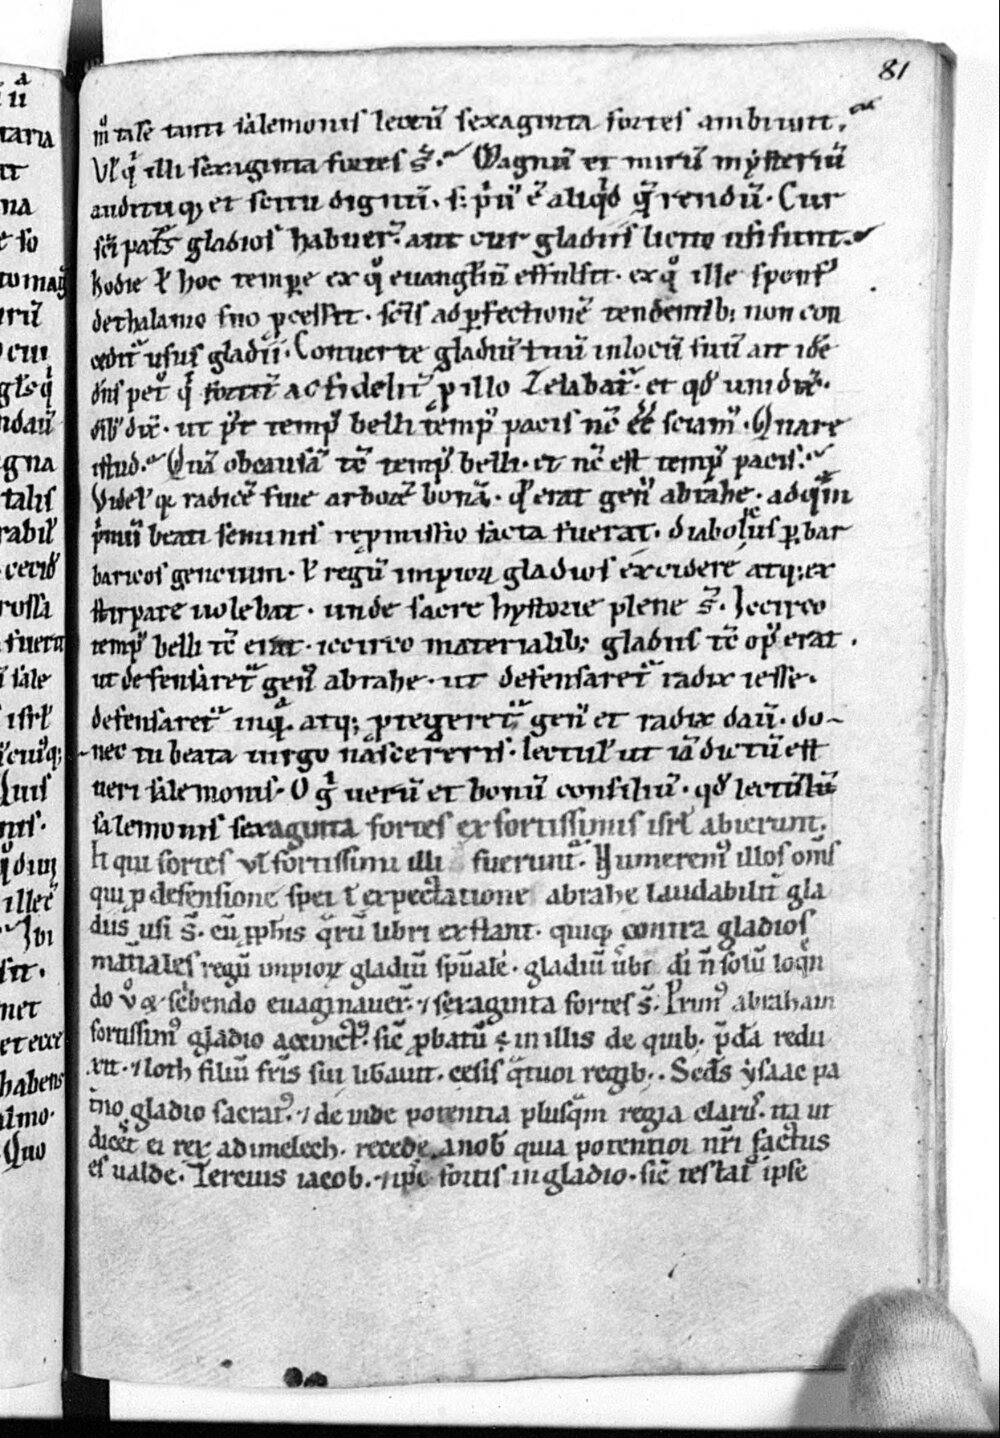 81
mͦ tale tanti salemonis lectū sexaginta fortes ambiunt.
Vl̓ qͥ illi sexaginta fortes s̄. Magnū et mirū mẏsteriū
auditu qͦꝫ et scitu dignū. sꝫ pͥꝰ ē aliqͥd q̄rendū. Cur
sc̄i pat̄s gladios habuer̄. aut cur gladiis licite usi sunt.
hodie l̓ hoc tempore ex qͦ euangl̄iū effulsit. ex qͦ ille sponsꝰ
de thalamo suo ꝓcessit. sc̄is ad ꝑfectionē tendentibꝫ non con
cedit᷑ usus gladii. Conuerte gladiū tuū in locū suū ait idē
dn̄s petͦ qͥ fortit̄ ac fidelit̄ ꝓ illo zelabat᷑. et qd̓
dic̄. ut p̄t tempꝰ belli tempꝰ pacis nc̄ eē̄ sciamꝰ. Quare
istud. Quā ob causā tc̄ tempꝰ belli. et nc̄ est tempꝰ pacis.
Videl̓ qꝫ radicē siue arborē bonā. qͦd̓ erat genꝰ abrahe. ad qͣm
pͥmū beati seminis repmissio facta fuerat. diabolus ꝑ bar
baricos gencium. l̓ regū impioꝝ gladios excidere atqꝫ ex
stirpare uolebat. unde sacre hystorie plene s̄. Iccirco
tempꝰ belli tc̄ erat. iccirco materialibꝫ gladiis tc̄ opꝰ erat.
ut defensaret᷑ genꝰ abrahe. ut defensaret᷑ radix iesse.
defensaret᷑ inqͣ. atqꝫ ꝓtegeret᷑ genꝰ et radix dauī. do-
nec tu beata uirgo nascereris. lectul̓ ut iā dictū est
ueri salemonis. O gͥ uerū et bonū consiliū. qd̓ lectulū
salemonis sexaginta fortes ex fortissimis isrl̓ abierunt.
Ii qui fortes ul̓ fortissimi illi fuerunt. Numerem̓ illos om̄s
qui ꝓ defensione spei l̓ expectatione abrahe laudabilit̄ gla
diis usi s̄. cū ꝓphis q̄rū libri exstant. quiqꝫ contra gladios
mat̄iales regū impioꝝ gladiū spūale. gladiū ūbi di n̄ solū loqͣn
do ūꝫ sc̄bendo euaginauer̄. ⁊ sexaginta fortes s̄. Primꝰ abraham
fortissimꝰ gladio accinctꝰ. sic̄ ꝓbatū ē in illis de quibꝫ p̄da redu
xit. ⁊ loth filiū fr̄is sui lib̄auit. cesis qͣtuor regibꝫ. Sed̄s ẏsaac pa
tno gladio sacratꝰ. ⁊ deinde potentia plusqͣm regia clarꝰ. ita ut
dicēt ei rex adimelech. recede a nob̓ quia potentior nr̄i factus
es ualde. Tercius iacob. ⁊ ipē fortis in gladio. sic̄ testat᷑ ipse